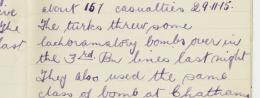 about 167 casualties 29.11.15.
The turks threw some
lachoramatory bombs over in
the 3rd. Bn lines last night
They also used the same
class of bomb at Chathams
last